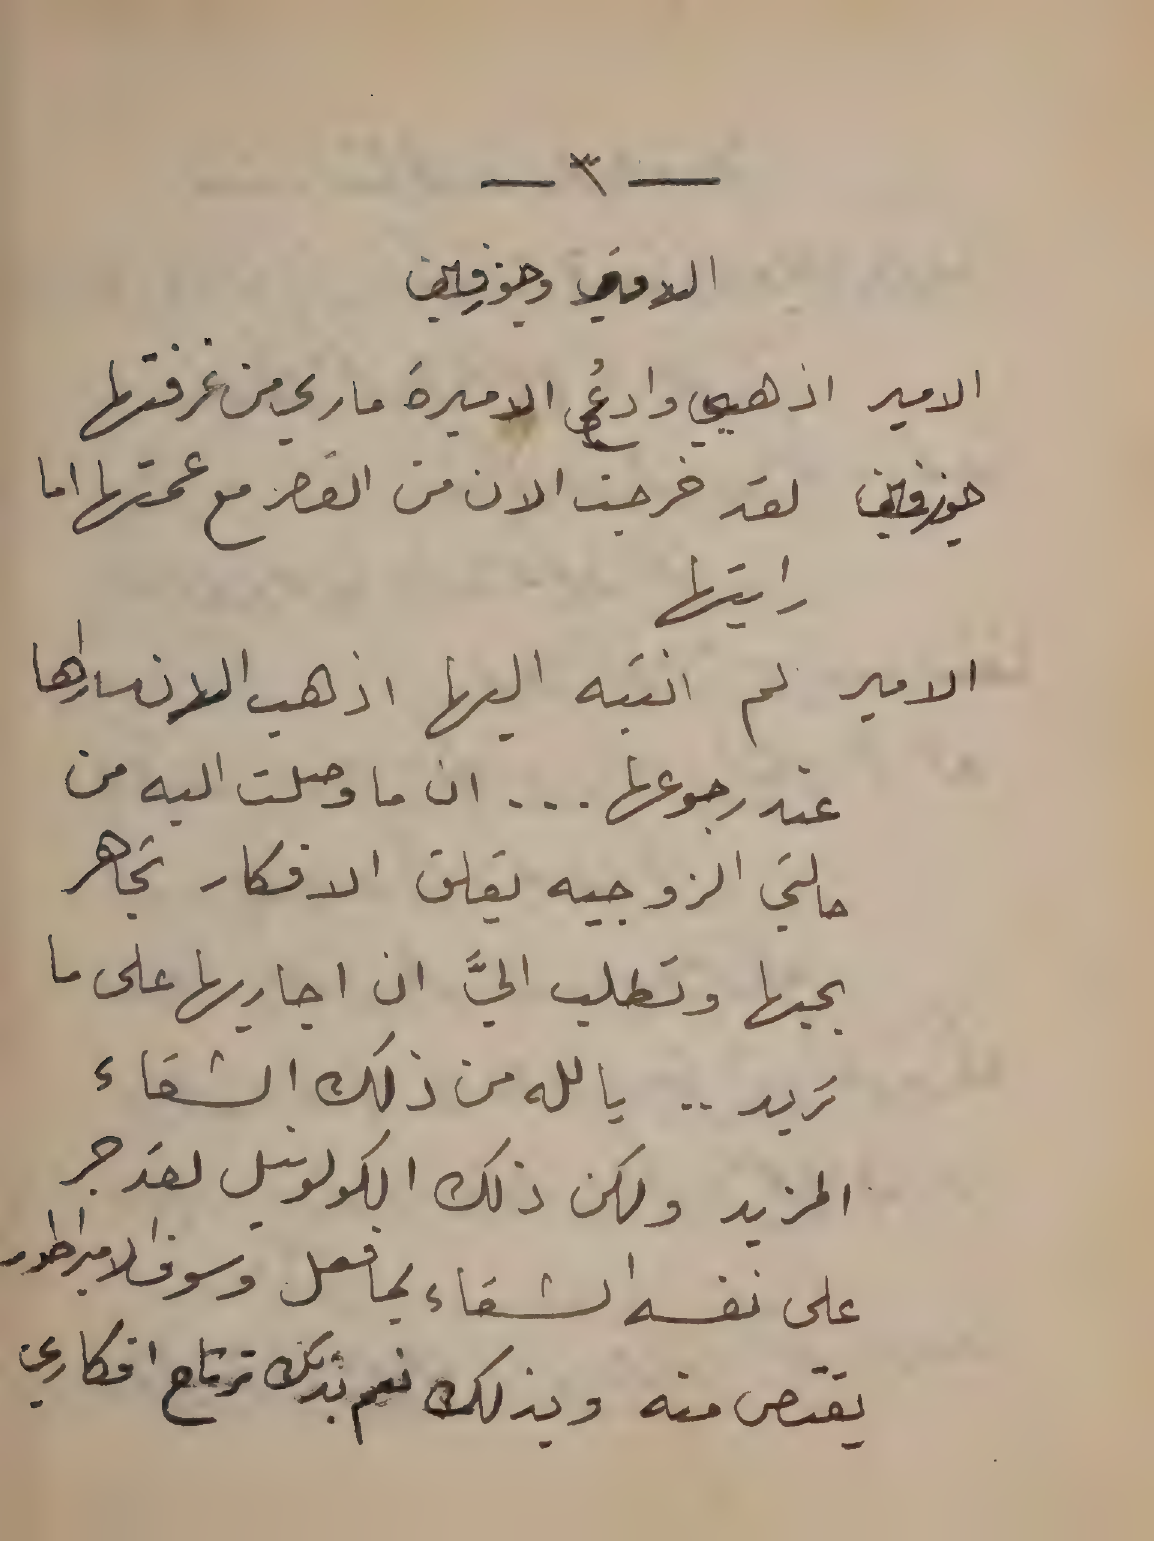 — ٣ —
وجوزفين
الامير اذهبي وادعي الاميرة ماري من غرفتها
جوزفين لقد خرجت الان من القصر مع عمتها اما
رايتها
الامير لم انتبه اليها اذهب الان ساراها
عند رجوعها ... ان ما وصلت اليه من
حالتي الزوجيه يقلق الافكار تجاهر
بحبها وتطلب اليَّ ان اجاريها على ما
تريد .. يالله من ذلك الشقاء
المزيد ولكن ذلك الكولونيل لقد جر
على نفسه الشقاء بما فعل وسوف الامبراطور
يقتص منه وبذلك نعم بذلك ترتاح افكاري